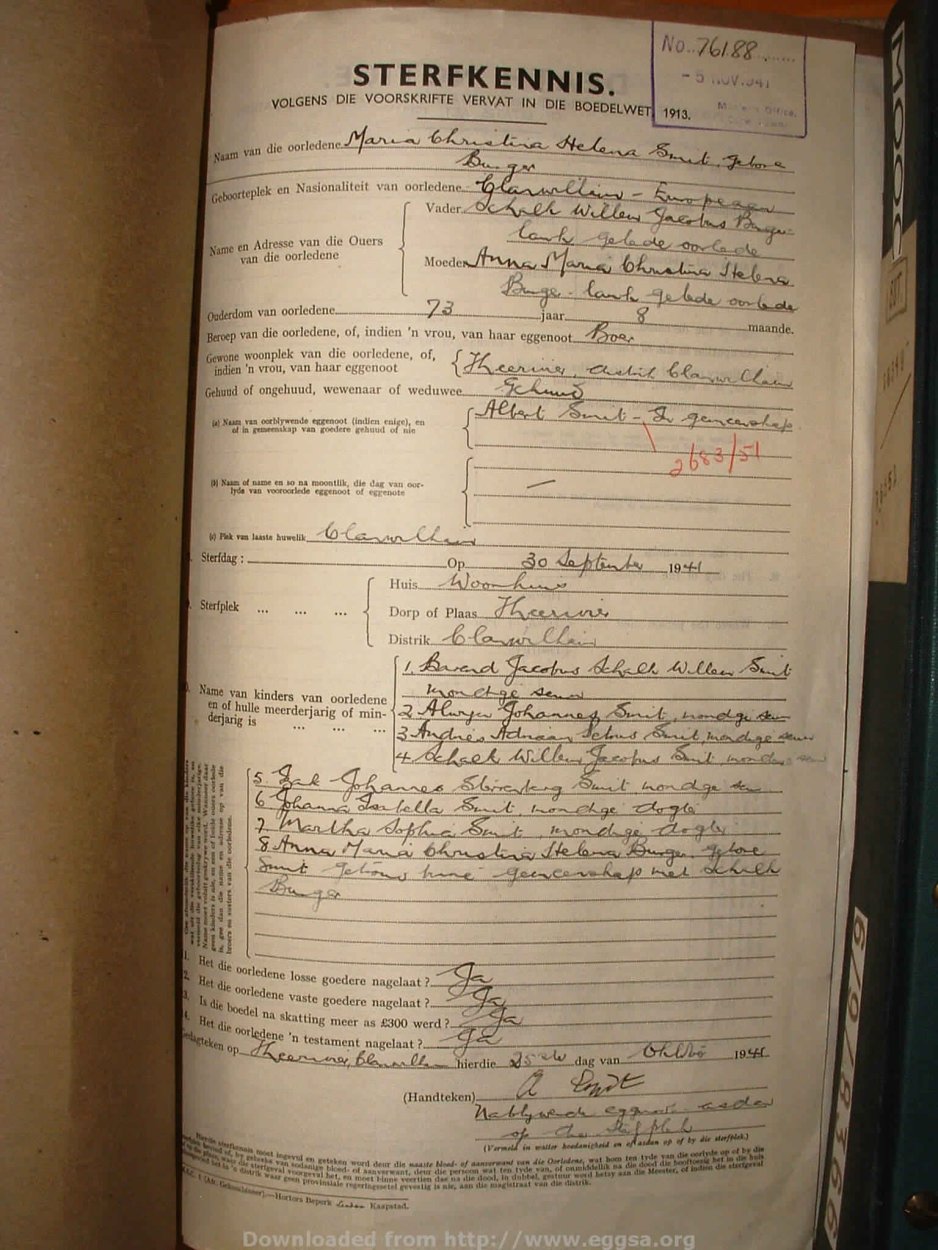 No. 76188
- 5 NOV. 1941
STERFKENNIS.
VOLGENS DIE VOORSKRIFTE VERVAT IN DIE BOEDELWET, 1913.
Naam van die oorledene Maria Christina Helena Smit, gebore
Burger
Geboorteplek en Nasionaliteit van oorledene Clanwilliam - Europeaan
Name en Adresse van die Ouers van die oorledene
Vader Schalk Willem Jacobus Burger
lank gelede oorlede
Moeder Anna Maria Christina Helena
Burger - lank gelede oorlede
Ouderdom van oorledene 73 jaar 8 maande.
Beroep van die oorledene, of, indien 'n vrou, van haar eggenoot Boer
Gewone woonplek van die oorledene, of, indien 'n vrou, van haar eggenoot
distrik Clanwilliam
Gehuud of ongehuud, wewenaar of weduwee Gehuud
(a) Naam van oorblywende eggenoot (indien enige), en of in gemeenskap van goedere gehuud of nie
Albert Smit - In gemeenskap
2683/51
(b) Naam of name en so na moontlik, die dag van oorlyde van vooroorlede eggenoot of eggenote
—
(c) Plek van laaste huwelik Clanwilliam
Sterfdag : Op 30 September 1941
Sterfplek ... ... ...
Huis Woonhuis
Dorp of Plaas
Distrik Clanwilliam
Name van kinders van oorledene en of hulle meerderjarig of minderjarig is ... ... ...
1. Barend Jacobus Schalk Willem Smit
mondige seun
2 Alwyn Johannes Smit, mondige seun
3 Andries Adriaan Smit, mondige seun
4 Schalk Willem Jacobus Smit, mondige seun
5. Izak Johannes Smit mondige seun
6 Johanna Isabella Smit, mondige dogter
7 Martha Sophia Smit, mondige dogter
8. Anna Maria Christina Helena Burger, gebore
Smit getroud gemeenskap met Schalk
Burger
1. Het die oorledene losse goedere nagelaat ? Ja
2. Het die oorledene vaste goedere nagelaat ? Ja
3. Is die boedel na skatting meer as £300 werd ? Ja
4. Het die oorledene 'n testament nagelaat ? Ja
Gedagteken op hierdie 25ste dag van Oktober 1941
(Handteken) A Smit
Nablywende eggenoot
(Vermeld in watter hoedanigheid en of asdan op of by die sterfplek)
Hortors Beperk Kaapstad.
MOOC
6/9/8366
Downloaded from http://www.eggsa.org